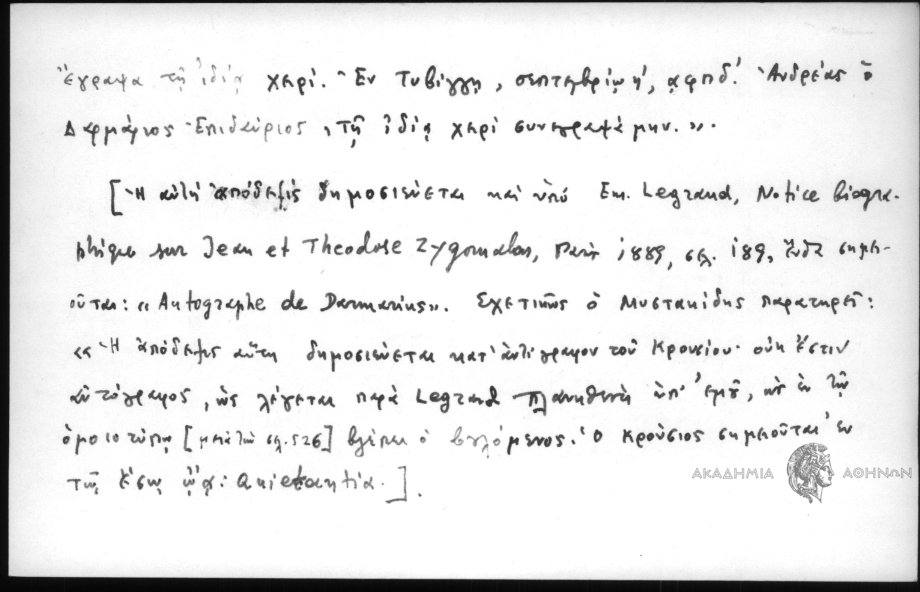 Ἔγραψα τῇ ἰδίᾳ χειρί. Ἐν Τυβίγγῃ, σεπτεμβρίῳ η', ᾳφπδ'. Ἀνδρέας ὁ
Δαρμάριος Ἐπιδαύριος, τῇ ἰδίᾳ χειρὶ συνεγραψάμην.».
[Ἡ αὐτὴ ἀπόδειξις δημοσιεύεται καὶ ὑπὸ Em. Legrand, Notice biogra-
phique sur Jean et Theodose Zygomalas, Paris 1889, σελ. 189, ἔνθα σημει-
οῦται: «Autographe de Darmarius». Σχετικῶς ὁ Μυστακίδης παρατηρεῖ:
«Ἡ ἀπόδειξις αὕτη δημοσιεύεται κατ' ἀντίγραφον τοῦ Κρουσίου· οὐκ ἔστιν
αὐτόγραφος, ὡς λέγεται παρὰ Legrand πλανηθέντι ὑπ' ἐμοῦ, ὡς ἐν τῷ
ὁμοιοτύπῳ [μετὰ τὴν σελ. 526] βλέπει ὁ βουλόμενος. Ὁ Κρούσιος σημειοῦται ἐν
τῇ ἔσω ᾤᾳ: quietantia.].
ΑΚΑΔΗΜΙΑ ΑΘΗΝΩΝ